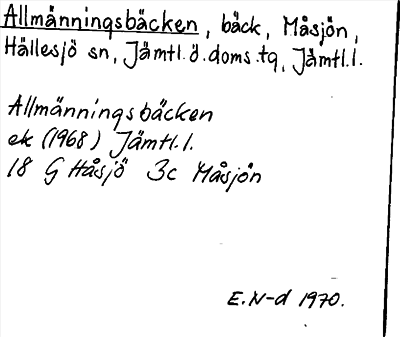 Allmänningsbäcken, bäck, Måsjön,
Hällesjö sn, Jämtl.ö.doms.tg, Jämtl.l.
Allmänningsbäcken
ek (1968) Jämtl.l.
18 G Håsjö 3c Måsjön
E.N-d 1970.